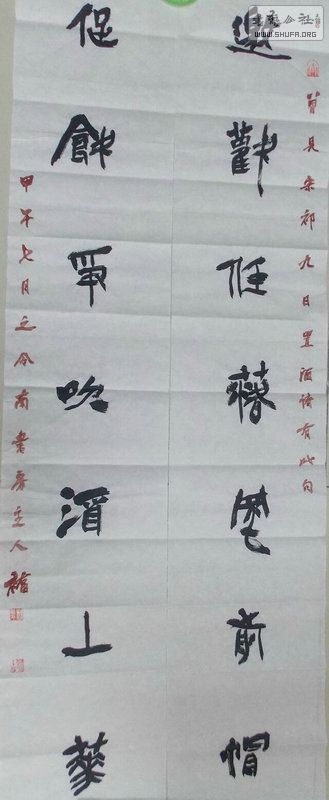 書法公社
WWW.SHUFA.ORG
曾見宋祁九日置酒詩有此句
邀歡任落風前帽
促飲爭吹酒上華
甲午七月之南書房主人